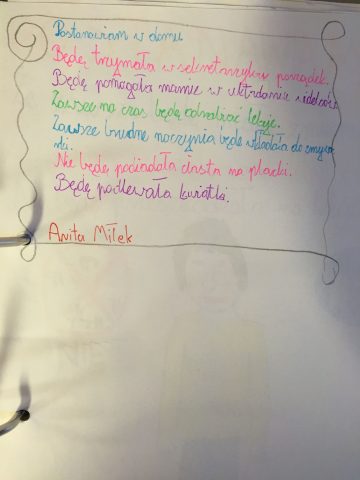 Postanawiam w domu
Będę trzymała w sekretarzyku porządek.
Będę pomagała mamie w układaniu
Zawsze na czas będę odrabiać lekcje.
Zawsze brudne naczynia będę wkładała do zmywar
ki.
Nie będę podjadała ciasta na placki.
Będę podlewała kwiatki.
Anita Miłek